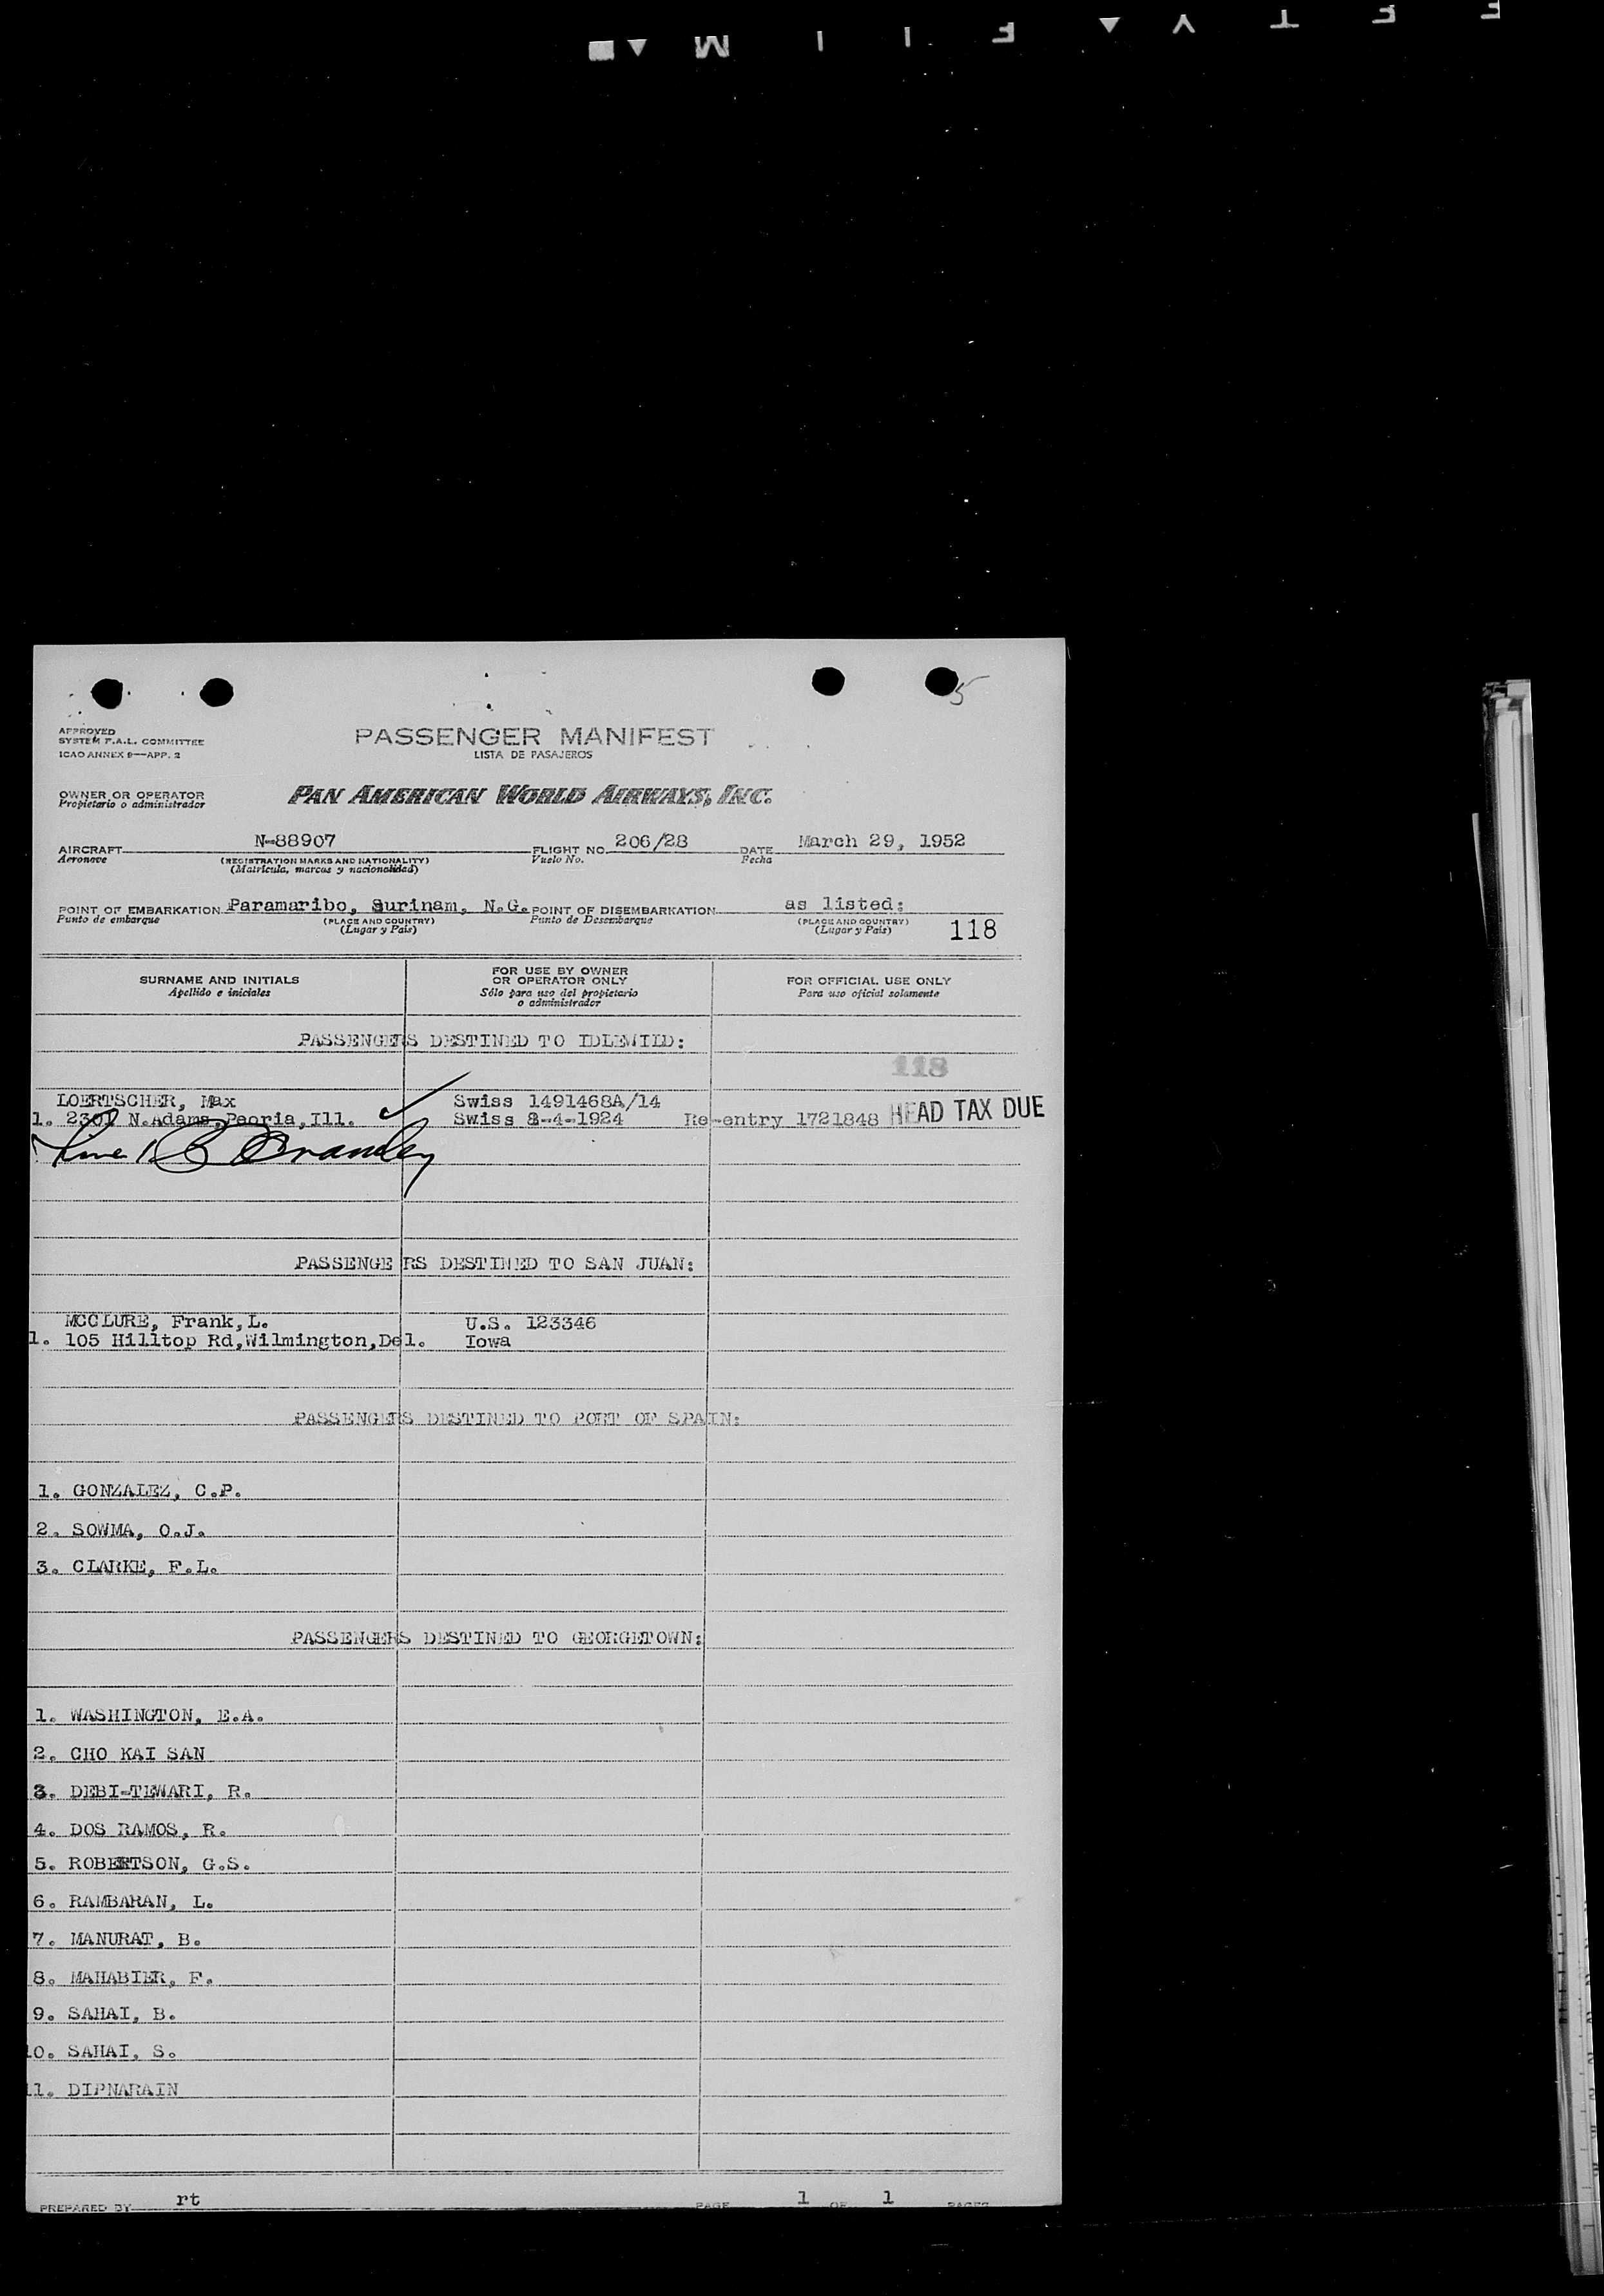 5
APPROVED
SYSTEM F.A.L. COMMITTEE
ICAO ANNEX 9—APP. 2
PASSENGER MANIFEST
LISTA DE PASAJEROS
OWNER OR OPERATOR
Propietario o administrador
PAN AMERICAN WORLD AIRWAYS, INC.
AIRCRAFT N-88907 FLIGHT NO. 206/28 DATE March 29, 1952
Aeronave (REGISTRATION MARKS AND NATIONALITY) Vuelo No. Fecha
(Matrícula, marcas y nacionalidad)
POINT OF EMBARKATION Paramaribo, Surinam, N.G. POINT OF DISEMBARKATION as listed:
Punto de embarque (PLACE AND COUNTRY) Punto de Desembarque (PLACE AND COUNTRY)
(Lugar y País) (Lugar y País) 118
SURNAME AND INITIALS FOR USE BY OWNER OR OPERATOR ONLY FOR OFFICIAL USE ONLY
Apellido e iniciales Sólo para uso del propietario o administrador Para uso oficial solamente
PASSENGERS DESTINED TO IDLEWILD:
118
LOERTSCHER, Max Swiss 1491468A/14
1. 2301 N.Adams,Peoria,Ill. Swiss 8-4-1924 Re-entry 1721848 HEAD TAX DUE
PASSENGERS DESTINED TO SAN JUAN:
MCCLURE, Frank,L. U.S. 123346
1. 105 Hilltop Rd,Wilmington,Del. Iowa
PASSENGERS DESTINED TO PORT OF SPAIN:
1. GONZALEZ, C.P.
2. SOWMA, O.J.
3. CLARKE, F.L.
PASSENGERS DESTINED TO GEORGETOWN:
1. WASHINGTON, E.A.
2. CHO KAI SAN
3. DEBI-TEWARI, R.
4. DOS RAMOS, R.
5. ROBERTSON, G.S.
6. RAMBARAN, L.
7. MANURAT, B.
8. MAHABIER, F.
9. SAHAI, B.
10. SAHAI, S.
11. DIPNARAIN
PREPARED BY rt PAGE 1 OF 1 PAGES